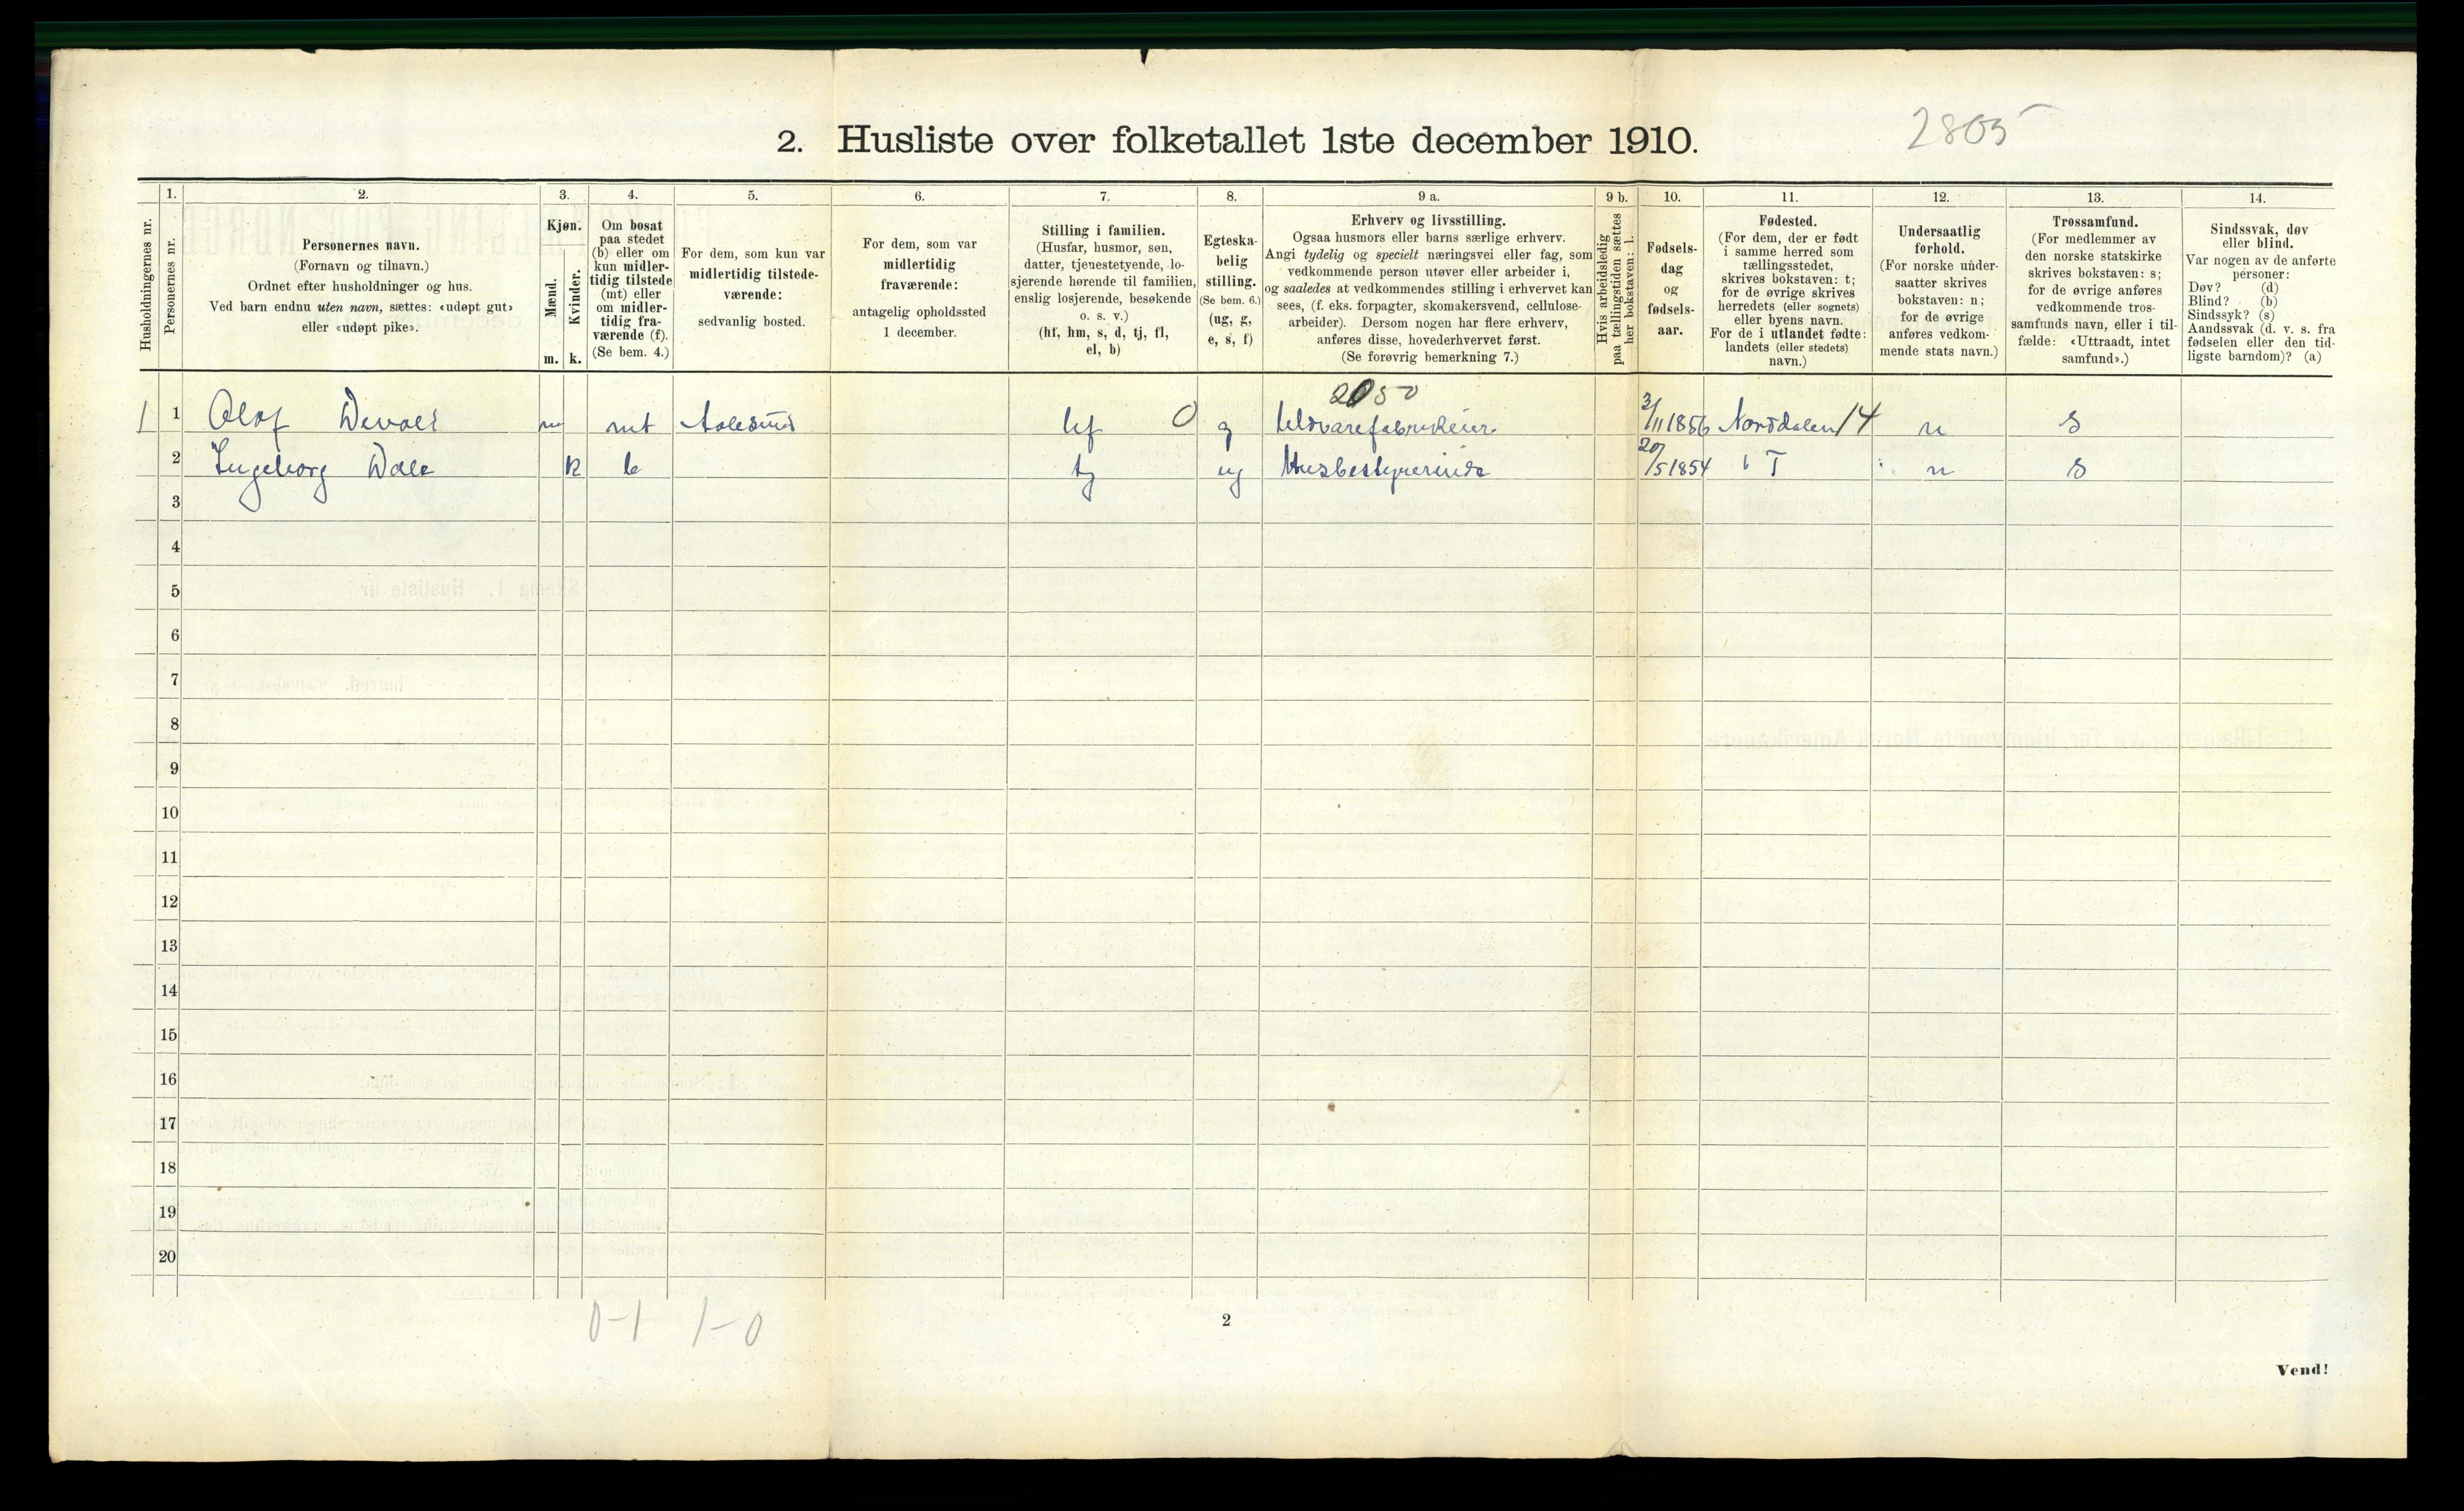 2. Husliste over folketallet 1ste december 1910.
2805
Husholdningernes nr.
1.
Personernes nr.
2.
Personernes navn.
(Fornavn og tilnavn.)
Ordnet efter husholdninger og hus.
Ved barn endnu uten navn, sættes: «udøpt gut»
eller «udøpt pike».
3.
Kjøn.
Mænd.
m.
Kvinder.
k.
4.
Om bosat
paa stedet
(b) eller om
kun midler-
tidig tilstede
(mt) eller
om midler-
tidig fra-
værende (f).
(Se bem. 4.)
5.
For dem, som kun var
midlertidig tilstede-
værende:
sedvanlig bosted.
6.
For dem, som var
midlertidig
fraværende:
antagelig opholdssted
1 december.
7.
Stilling i familien.
(Husfar, husmor, søn,
datter, tjenestetyende, lo-
sjerende hørende til familien,
enslig losjerende, besøkende
o. s. v.)
(hf, hm, s, d, tj, fl,
el, b)
8.
Egteska-
belig
stilling.
(Se bem. 6.)
(ug, g,
e, s, f)
9 a.
Erhverv og livsstilling.
Ogsaa husmors eller barns særlige erhverv.
Angi tydelig og specielt næringsvei eller fag, som
vedkommende person utøver eller arbeider i,
og saaledes at vedkommendes stilling i erhvervet kan
sees, (f. eks. forpagter, skomakersvend, cellulose-
arbeider). Dersom nogen har flere erhverv,
anføres disse, hovederhvervet først.
(Se forøvrig bemerkning 7.)
9 b.
Hvis arbeidsledig
paa tællingstiden sættes
her bokstaven: l.
10.
Fødsels-
dag
og
fødsels-
aar.
11.
Fødested.
(For dem, der er født
i samme herred som
tællingsstedet,
skrives bokstaven: t;
for de øvrige skrives
herredets (eller sognets)
eller byens navn.
For de i utlandet fødte:
landets (eller stedets)
navn.)
12.
Undersaatlig
forhold.
(For norske under-
saatter skrives
bokstaven: n;
for de øvrige
anføres vedkom-
mende stats navn.)
13.
Trossamfund.
(For medlemmer av
den norske statskirke
skrives bokstaven: s;
for de øvrige anføres
vedkommende tros-
samfunds navn, eller i til-
fælde: «Uttraadt, intet
samfund».)
14.
Sindssvak, døv
eller blind.
Var nogen av de anførte
personer:
Døv? (d)
Blind? (b)
Sindssyk? (s)
Aandssvak (d. v. s. fra
fødselen eller den tid-
ligste barndom)? (a)
2050
1 1 Olaf Devold m mt Aalesund hf 0 g Uldvarefabrikeier 3/11 1856 Norddalen 14 n s
2 Ingeborg Dale k b tj ug Husbestyrerinde 20/5 1854 T n s
3
4
5
6
7
8
9
10
11
12
13
14
15
16
17
18
19
20
0-1 1-0
2
Vend!